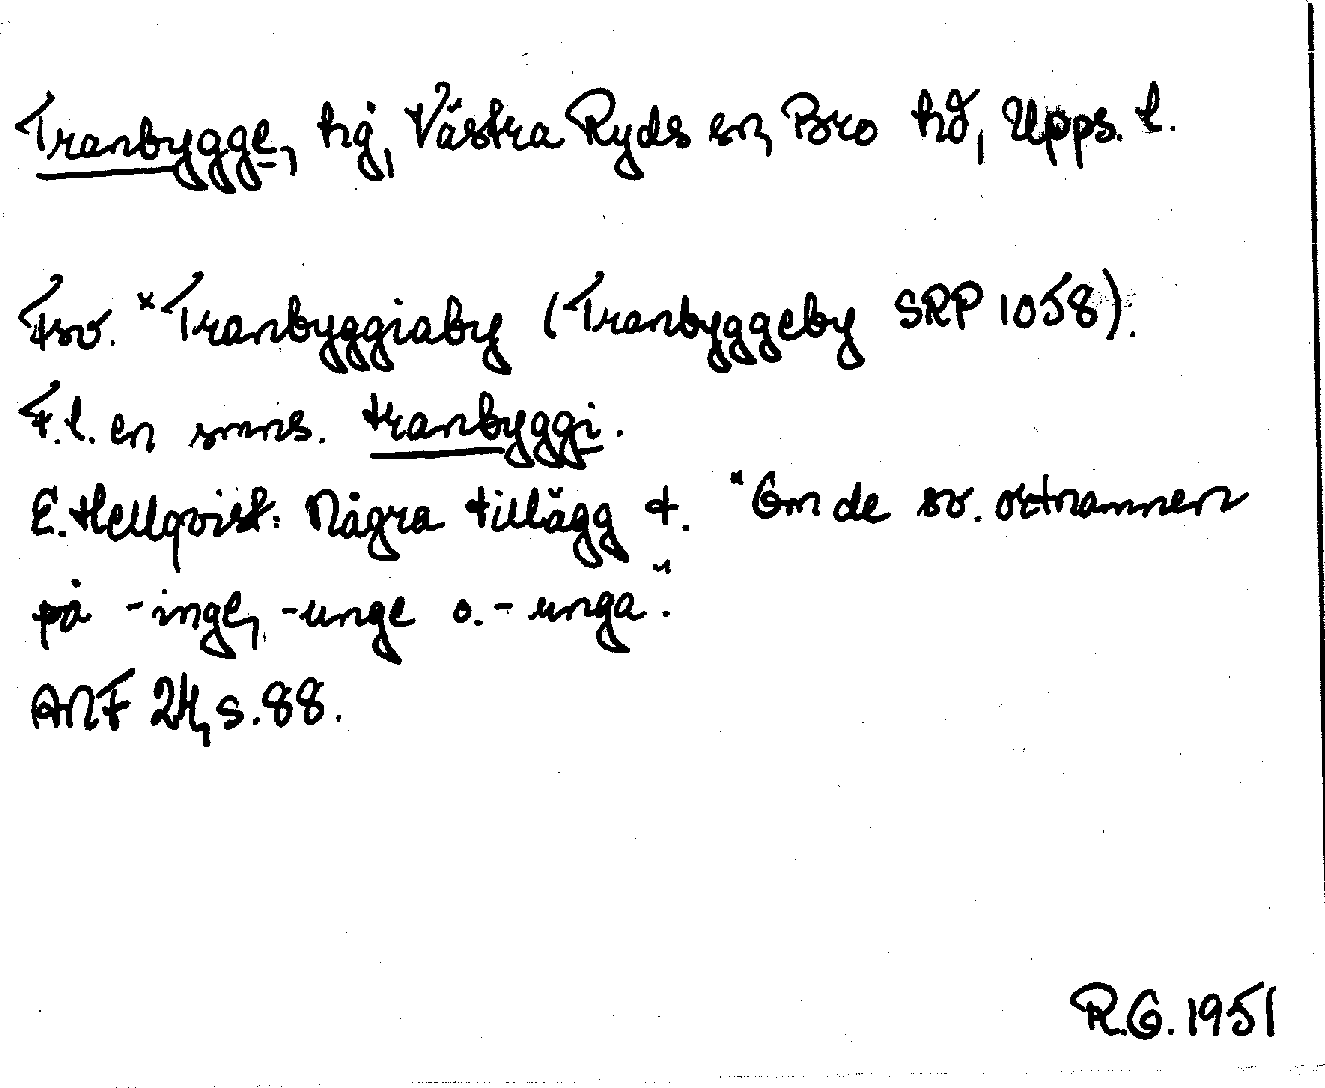 Tranbygge, hg, Västra Ryds sn, Bro hd, Upps. l.
Fsv. *Tranbyggiaby (Tranbyggeby SRP 1058).
F.l. en smns. tranbyggi.
E. Hellqvist: Några tillägg t. "Om de sv. ortnamnen
på -inge, -unge o. -unga".
ANF 24, s. 88.
R.G. 1951